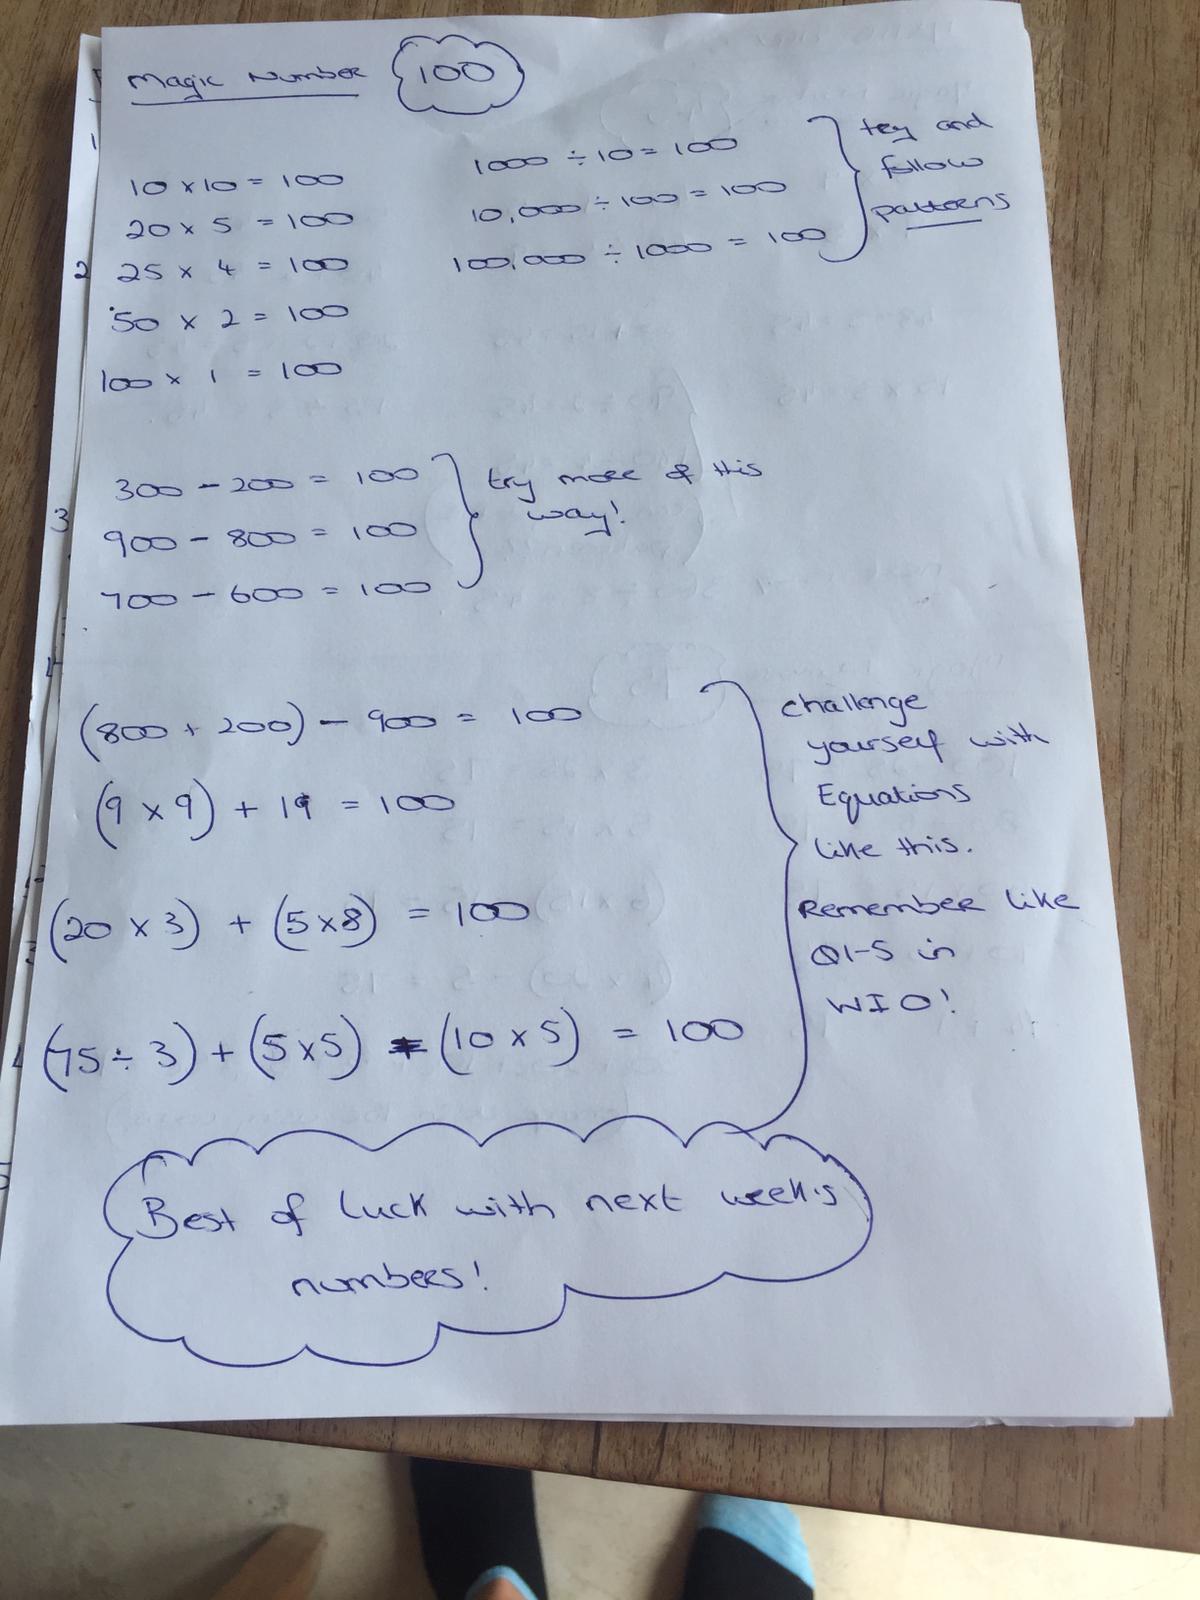 Magic Number 100
10 x 10 = 100
20 x 5 = 100
25 x 4 = 100
50 x 2 = 100
100 x 1 = 100
1000 ÷ 10 = 100
10,000 ÷ 100 = 100
100,000 ÷ 1000 = 100
try and
follow
patterns
300 - 200 = 100
900 - 800 = 100
700 - 600 = 100
try more of this
way!
(800 + 200) - 900 = 100
(9 x 9) + 19 = 100
(20 x 3) + (5 x 8) = 100
(75 ÷ 3) + (5 x 5) + (10 x 5) = 100
challenge
yourself with
Equations
like this.
Remember like
Q1-5 in
W10!
Best of luck with next week's
numbers!